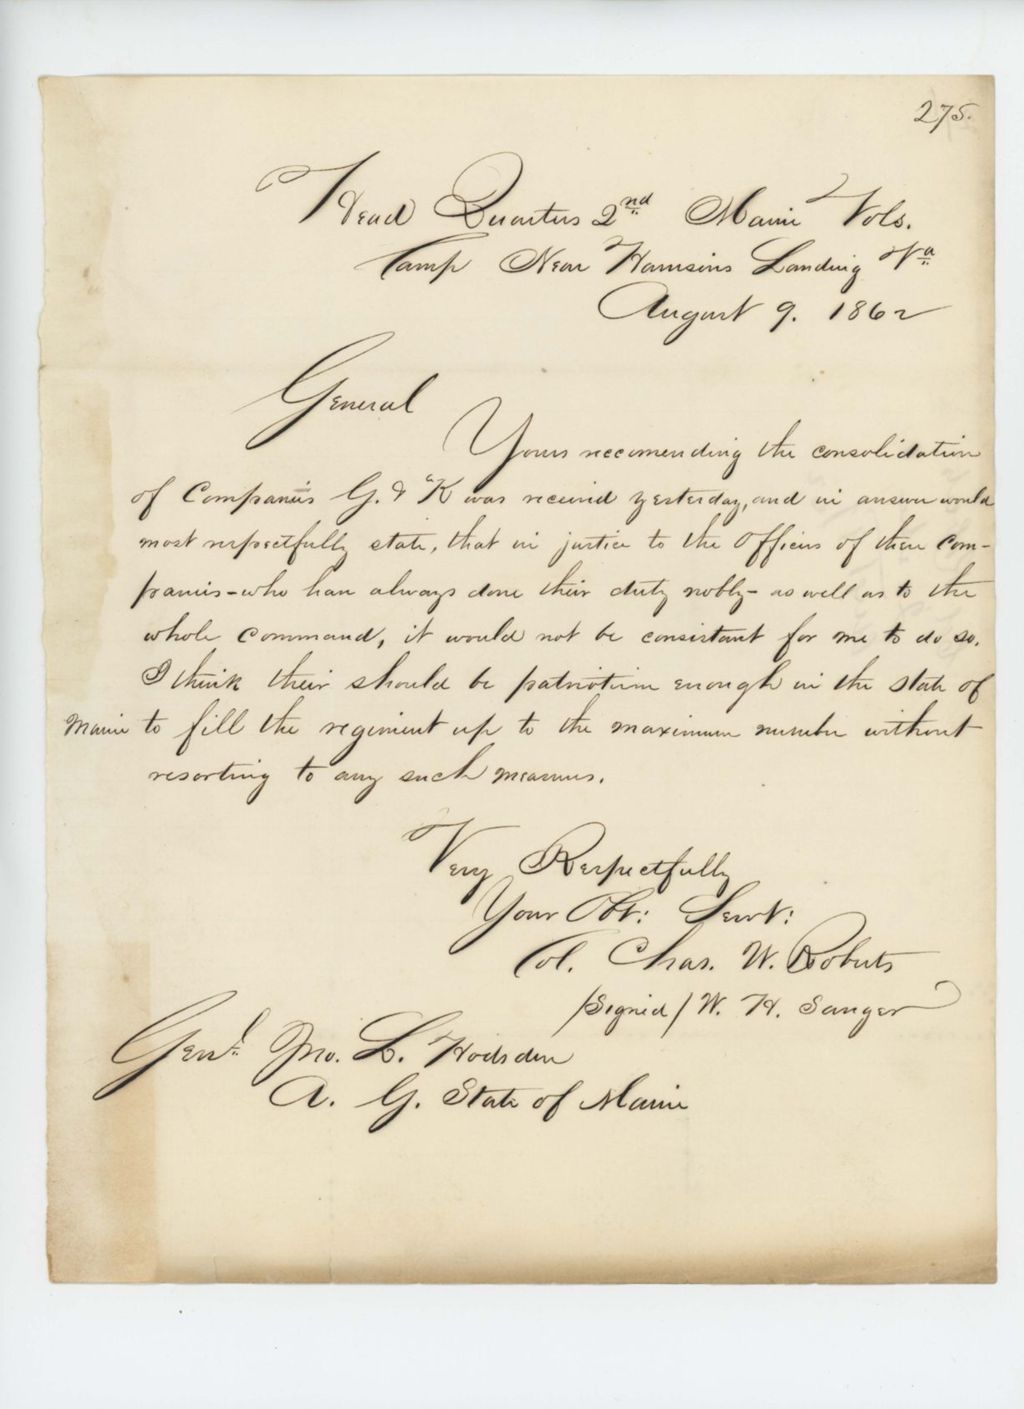 275.
Head Quarters 2nd Maine Vols.
Camp Near Harrisons Landing Va
August 9. 1862
General
Yours recomending the consolidation
of Companies G. & K was received yesterday, and in answer would
most respectfully state, that in justice to the Officers of these Com-
panies - who have always done their duty nobly - as well as to the
whole command, it would not be consistant for me to do so.
I think their should be patriotism enough in the state of
Maine to fill the regiment up to the maximum number without
resorting to any such measures.
Very Respectfully
Your Obt: Servt:
Col. Chas. W. Roberts
/Signed/ W. H. Sanger
Genl. Jno. L. Hodsdon
A. G. State of Maine